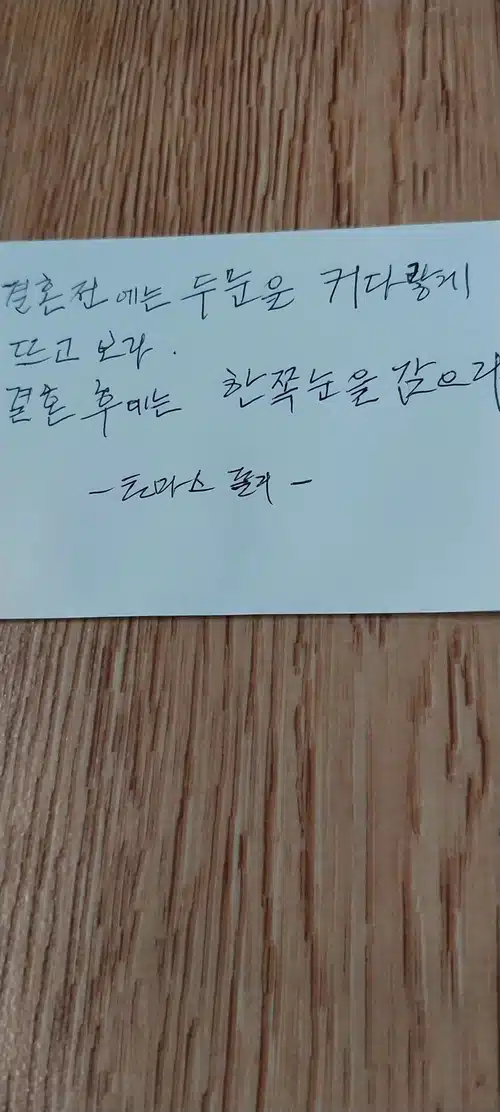 결혼전 에는 두눈을 커다랗게
뜨고 보라.
결혼 후에는 한쪽눈을 감으라
- 토마스 풀러 -